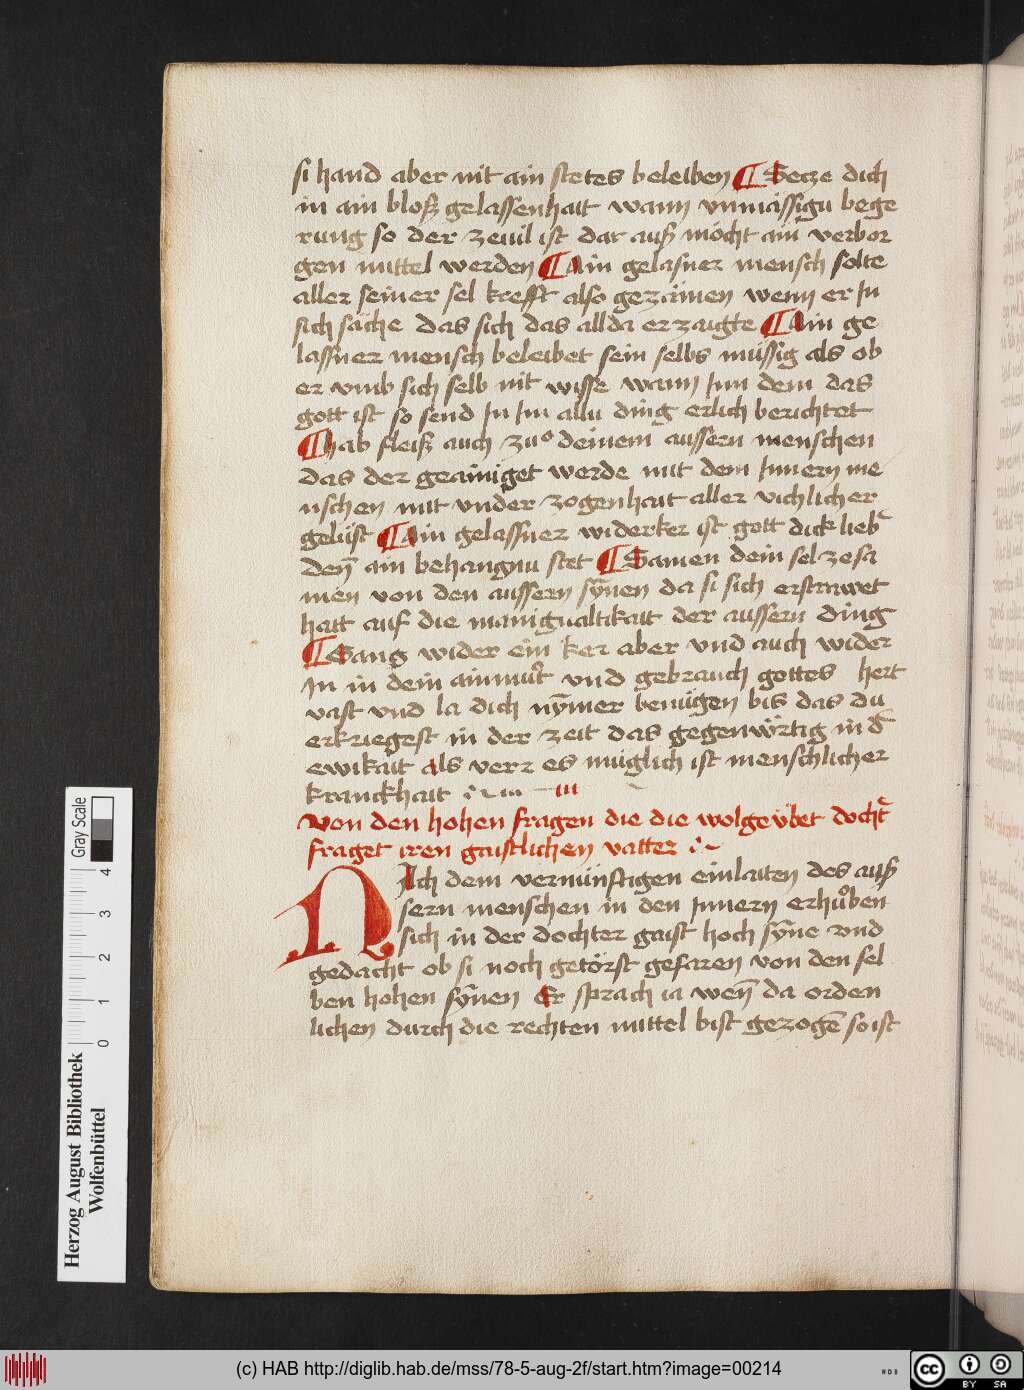 si hand aber nit ain stetes beleiben ¶ Secze dich
in ain blosz gelassenhait wann vnmässigu bege
rung so der zeuil ist dar ausz möcht ain verbor
gen mittel werden ¶ Ain gelasner mensch solte
aller seiner sel krefft also gezämen wenn er In
sich säche das sich das allda erzaigte ¶ Ain ge
lassner mensch beleibet sein selbs müssig als ob
er vmb sich selb nit wisse wann Inn dem das
gott ist so send In Im allu ding erlich berichtet
¶ hab fleisz auch zuͦ deinem aussern menschen
das der geainiget werde mit dem Innern me
nschen mit vnder zogenhait aller vichlicher
gelüst ¶ Ain gelassner widerker ist gott dick lieb̛
den̄ ain behangnu stet ¶ Samen dein sel zesa
men von den aussern sÿnen da si sich erstrawet
hatt auf die manigualtikait der aussern ding
¶ Gang wider ein ker aber vnd auch wider
In in dein ainmut̛ vnd gebrauch gottes hert
vast vnd la dich nÿmer benügen bis das du
erkriegest in der zeit das gegenwörtig in d̛
ewikait als verr es müglich ist menschlicher
kranckhait
Von den hohen fragen die die wolgeübet docht̛
fraget iren gaistlichen vatter
NAch dem vernünftigen einlaiten des ausz
sern menschen in den Innern erhuͦben
sich in der dochter gaist hoch sÿne vnd
gedacht ob si noch getörst gefaren von den sel
ben hohen sÿnen Er sprach ia wen̄ da orden
lichen durch die rechten mittel bist gezogē so ist
Herzog August Bibliothek
Wolfenbüttel
Gray Scale
0 1 2 3 4
(c) HAB http://diglib.hab.de/mss/78-5-aug-2f/start.htm?image=00214
WDB
cc BY SA